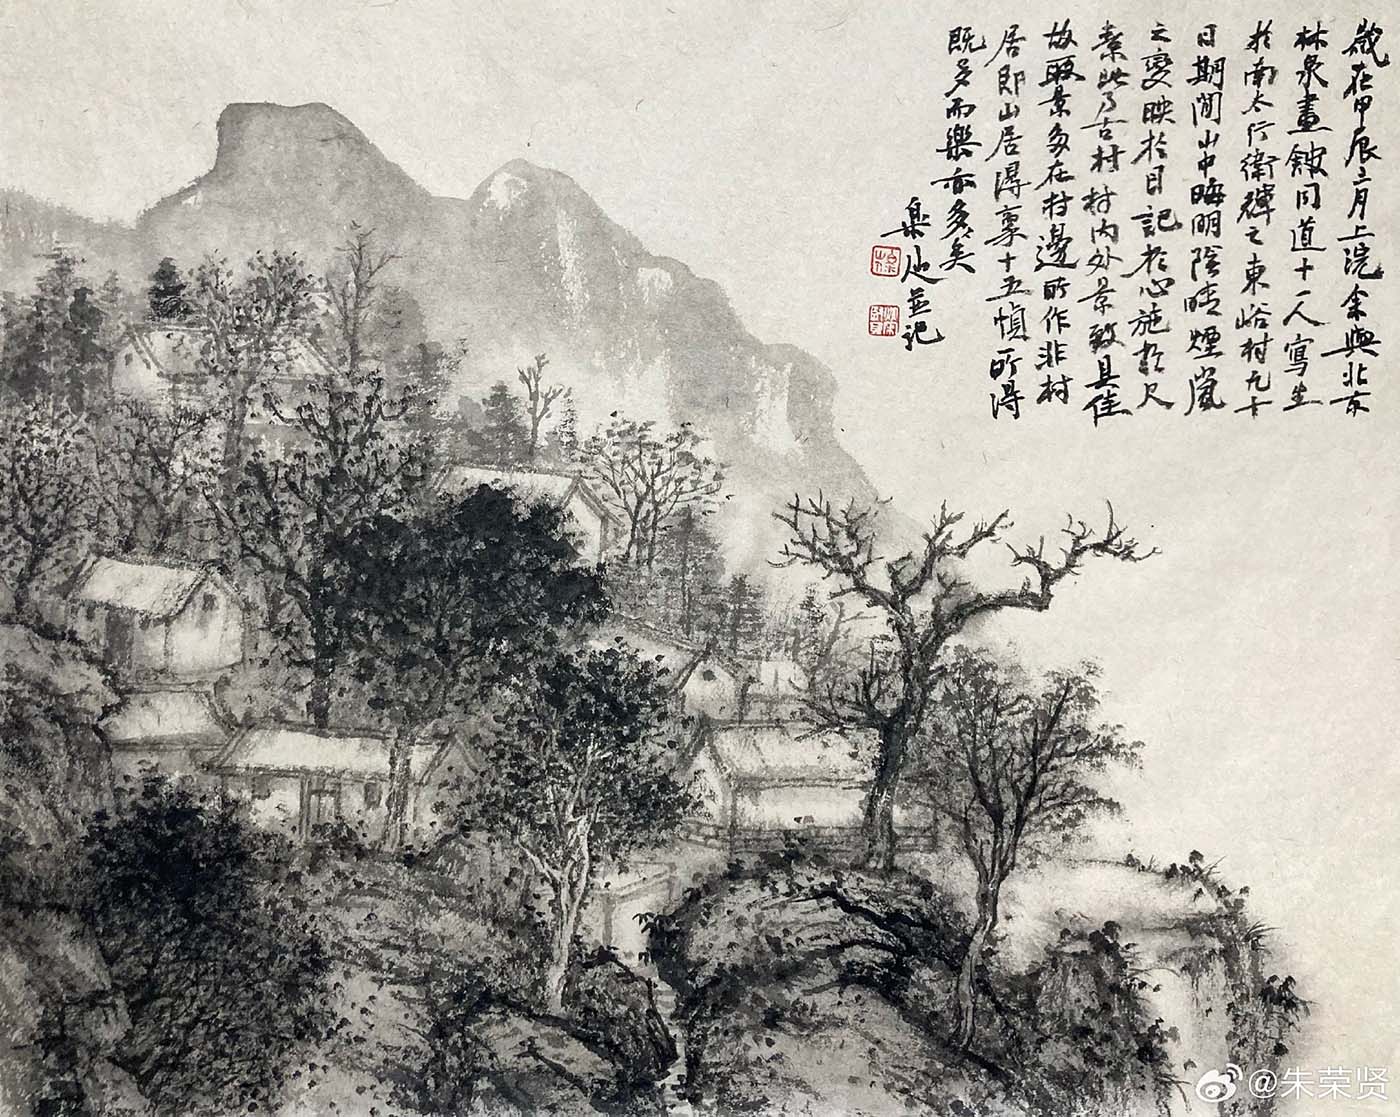 歲在甲辰三月上浣余與北京
林泉畫館同道十一人寫生
於南太行衛輝之東峪村九十
日期間山中晦明陰晴煙嵐
之變映於目記於心施於尺
素此乃古村村内外景致具佳
故取景多在村邊所作非村
居即山居得稾十五幀所得
既多而樂亦多矣
並记
@朱荣贤